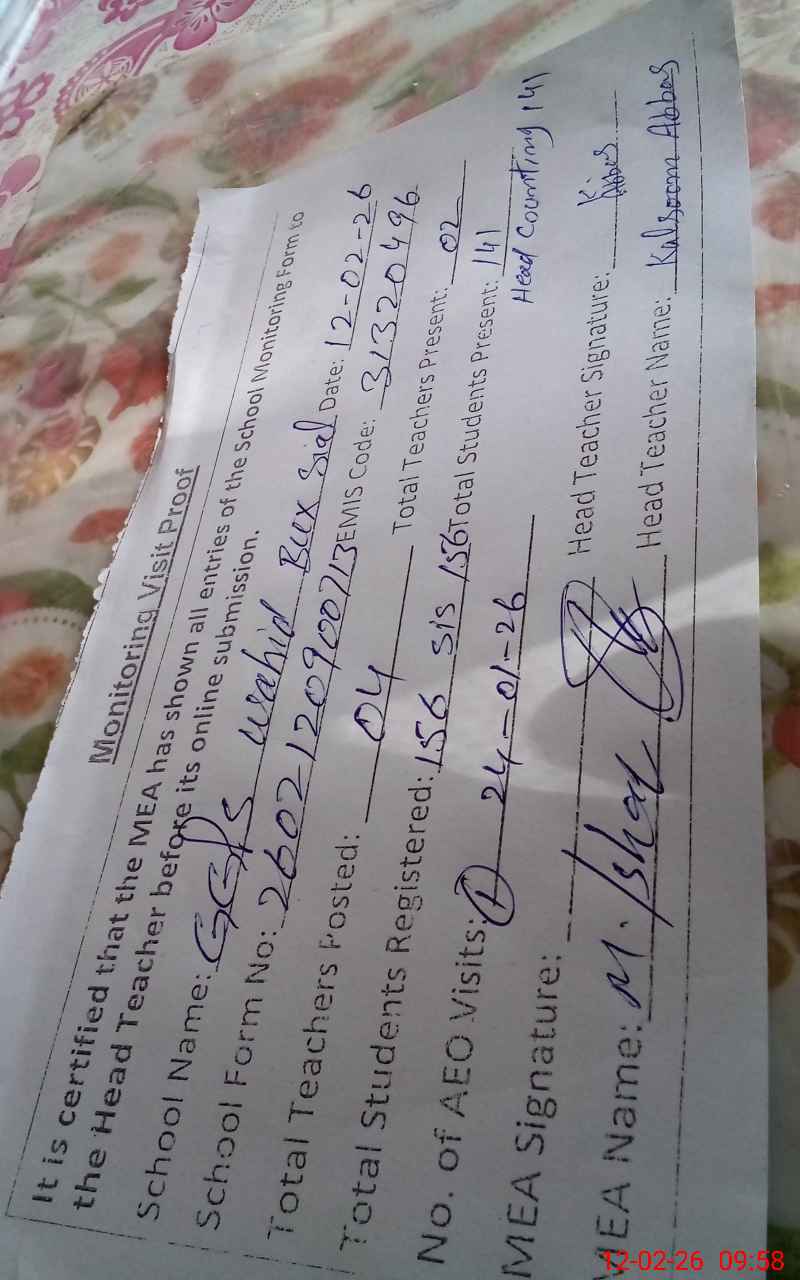 Monitoring Visit Proof
It is certified that the MEA has shown all entries of the School Monitoring Form to
the Head Teacher before its online submission.
School Name: GGPS Wahid Bux Sial Date: 12-02-26
School Form No: 260212090071 3 EMIS Code: 31320496
Total Teachers Posted: 04 Total Teachers Present: 02
Total Students Registered: 156 SIS 156 Total Students Present: 141
Head Counting 141
No. of AEO Visits: 1 24-01-26
MEA Signature: Head Teacher Signature: K. Abbas
MEA Name: M. Ishaq Head Teacher Name: Kulsoom Abbas
12-02-26 09:58